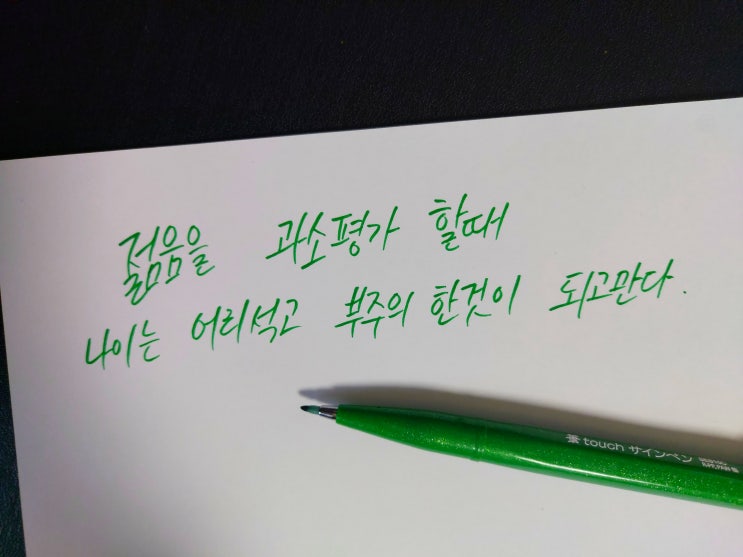 젊음을 과소평가 할때
나이는 어리석고 부주의 한것이 되고만다.
筆touch サインペン